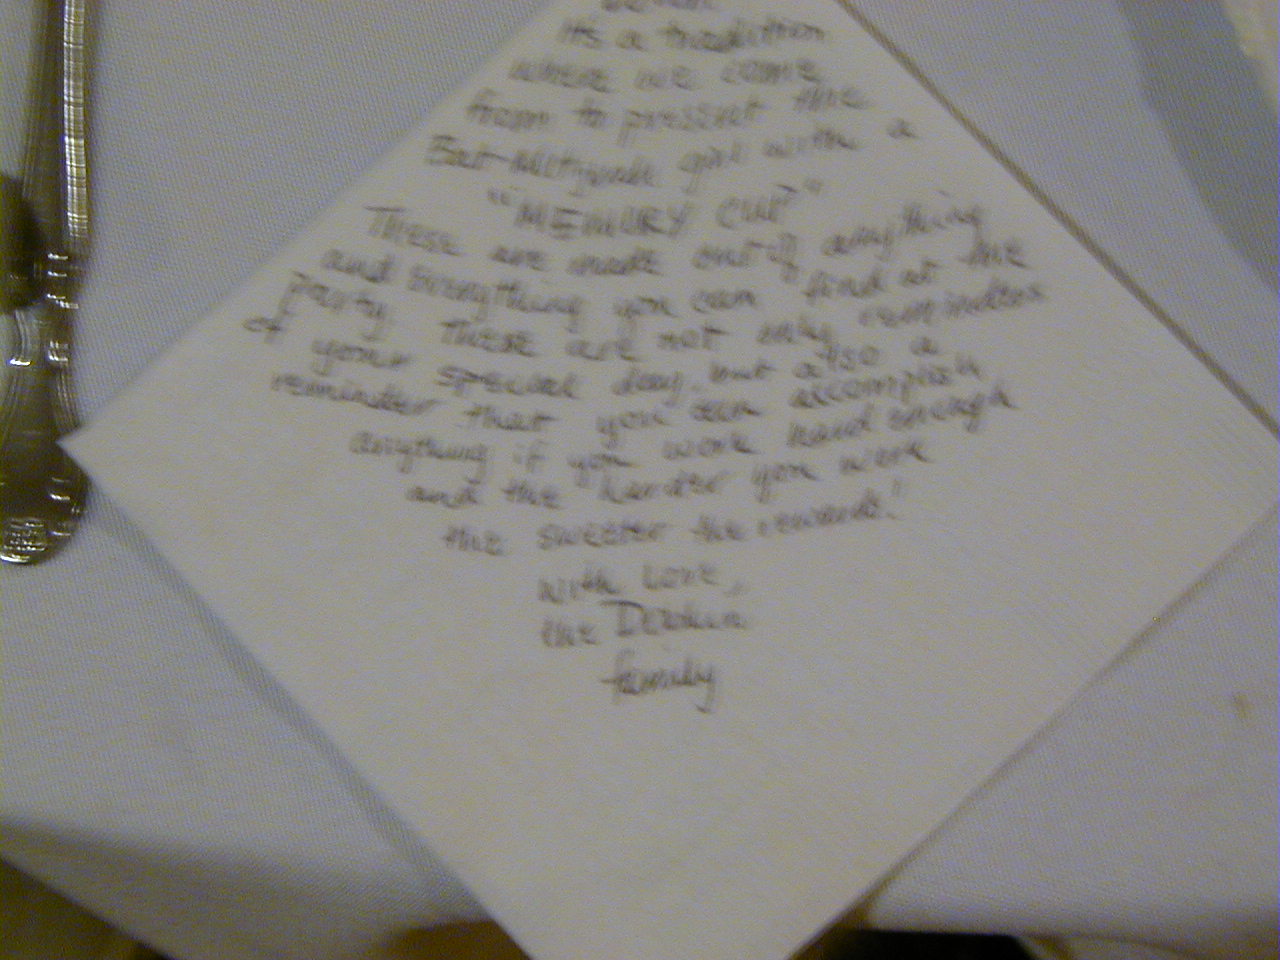 it's a tradition
where we come
from to present the
Bat-Mitzvah girl with a
"MEMORY CUP"
These are made out of anything
and everything you can find at the
party. These are not only reminders
of your special day, but also a
reminder that you can accomplish
anything if you work hard enough
and the harder you work
the sweeter the rewards!
with Love,
the
family